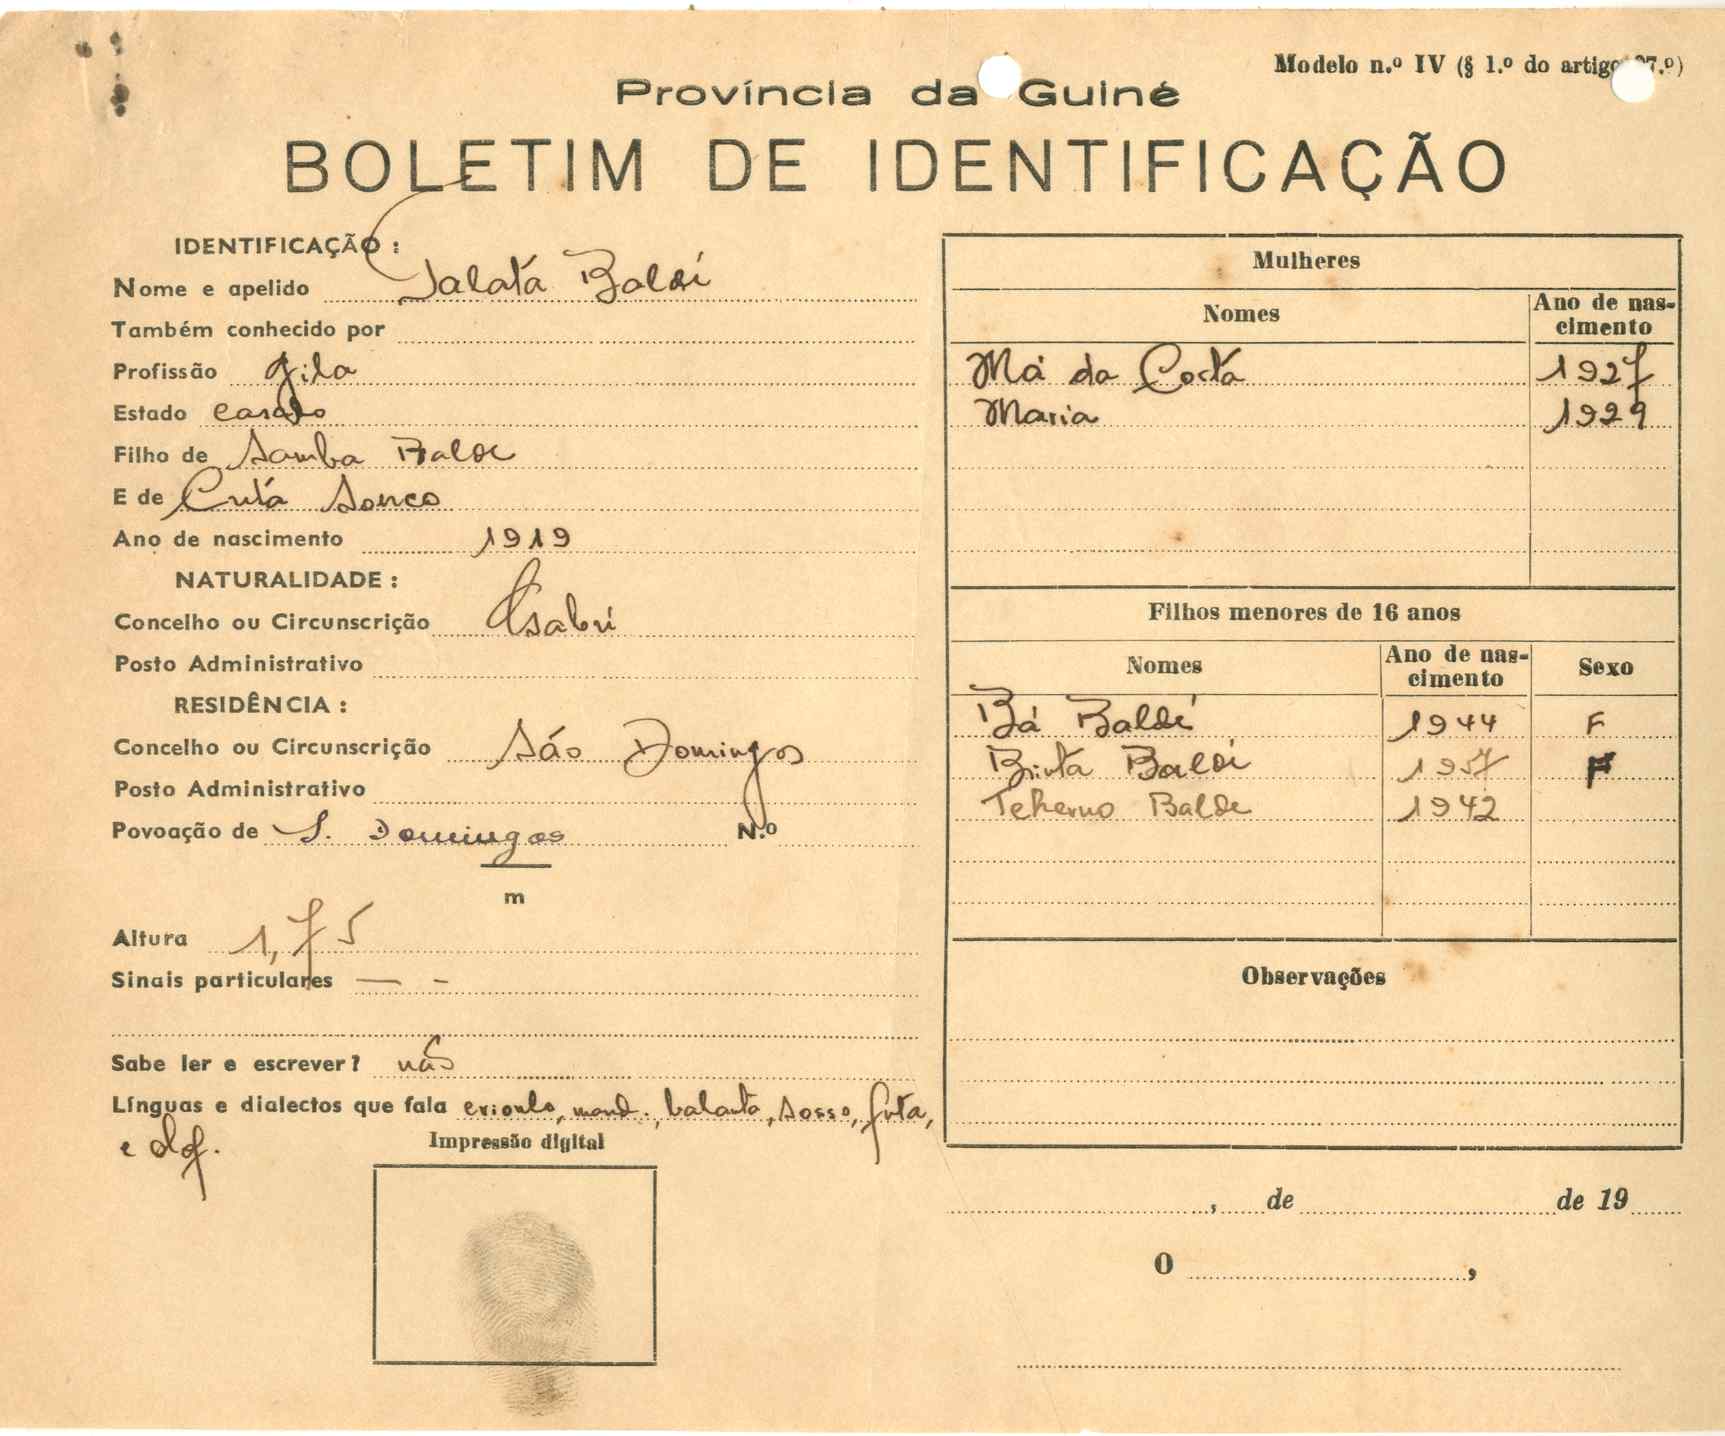 Modelo n.º IV (§ 1.º do artigo 7.º)
Província da Guiné
BOLETIM DE IDENTIFICAÇÃO
IDENTIFICAÇÃO :
Nome e apelido Baldé
Também conhecido por
Profissão gila
Estado casado
Filho de Samba Balde
E de Sonco
Ano de nascimento 1919
NATURALIDADE :
Concelho ou Circunscrição
Posto Administrativo
RESIDÊNCIA :
Concelho ou Circunscrição São Domingos
Posto Administrativo
Povoação de S. Domingos N.º
m
Altura 1,75
Sinais particulares — -
Sabe ler e escrever? não
Línguas e dialectos que fala crioulo, mand., balanta, sosso, futa,
e
Impressão digital
Mulheres
Nomes Ano de nas-
cimento
Má da Costa 1927
Maria 1929
Filhos menores de 16 anos
Nomes Ano de nas-
cimento Sexo
Bá Baldé 1944 F
Binta Baldé 1957 F
Tcherno Balde 1942
Observações
, de de 19
O ,